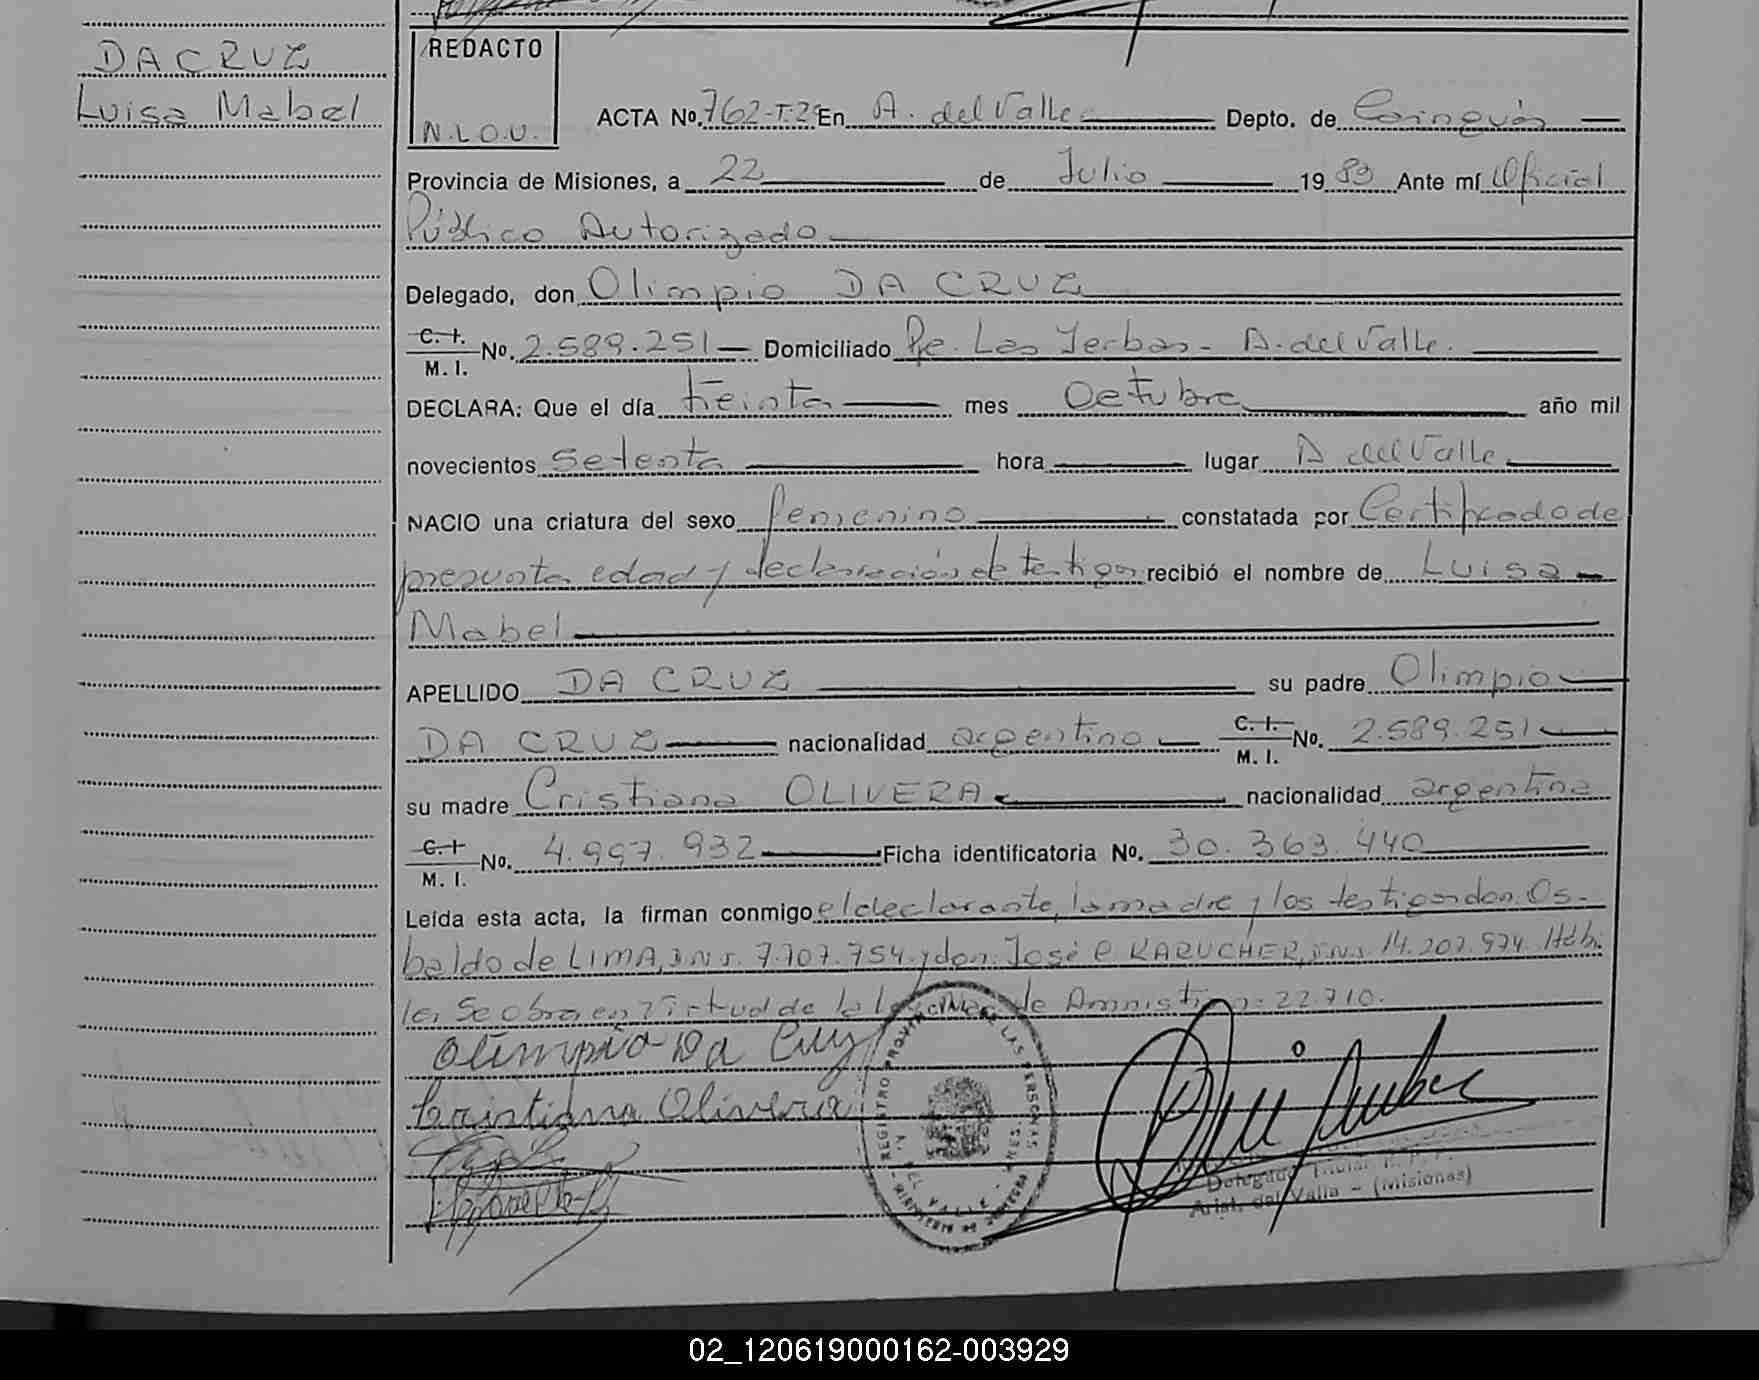 DA CRUZ
Luisa Mabel
REDACTO
N.L.O.U.
ACTA No. 762-T-2º En A. del Valle Depto. de Cainguás
Provincia de Misiones, a 22 de Julio 1983 Ante mí Oficial
Público Autorizado
Delegado, don Olimpio DA CRUZ
C. I.
M. I. No. 2.589.251 Domiciliado Pje. Las Yerbas - A. del Valle.
DECLARA: Que el día treinta mes Octubre año mil
novecientos setenta hora lugar A del Valle
NACIO una criatura del sexo femenino constatada por Certificado de
presunta edad y declaración de testigos recibió el nombre de Luisa
Mabel
APELLIDO DA CRUZ su padre Olimpio
DA CRUZ nacionalidad argentino C. I. M. I. No. 2.589.251
su madre Cristiana OLIVERA nacionalidad argentina
C. I. M. I. No. 4.997.932 Ficha identificatoria No. 30.363.440
Leída esta acta, la firman conmigo el declarante, la madre y los testigos don Os-
baldo de LIMA, 7.707.754. y don José KARUCHER, 14.207.974. Hábi-
les Se obra en virtud de la de Amnistía 22.710.
Olimpio Da Cruz
Cristiana Olivera
REGISTRO PROVINCIAL DE LAS PERSONAS
Delegado Titular R.P.P.
Arist. del Valle - (Misiones)
02_120619000162-003929